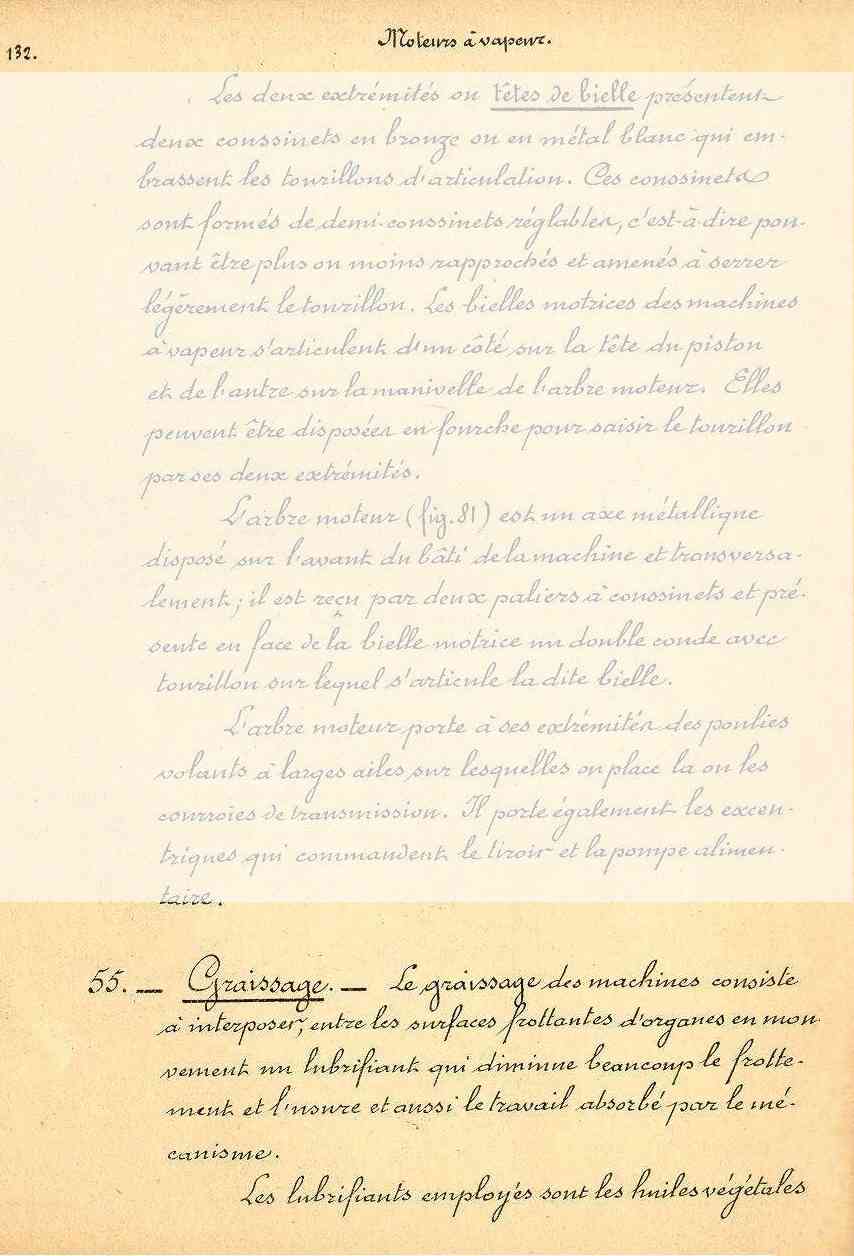 132.
Moteurs à vapeur.
Les deux extrémités ou têtes de bielle présentent
deux coussinets en bronze ou en métal blanc qui em-
brassent les tourillons d'articulation. Ces coussinets
sont formés de demi-coussinets réglables, c'est-à-dire pou-
vant être plus ou moins rapprochés et amenés à serrer
légèrement le tourillon. Les bielles motrices des machines
à vapeur s'articulent d'un côté sur la tête du piston
et de l'autre sur la manivelle de l'arbre moteur. Elles
peuvent être disposées en fourche pour saisir le tourillon
par ses deux extrémités.
L'arbre moteur (fig. 81) est un axe métallique
disposé sur l'avant du bâti de la machine et transversa-
lement; il est reçu par deux paliers à coussinets et pré-
sente en face de la bielle motrice un double coude avec
tourillon sur lequel s'articule la dite bielle.
L'arbre moteur porte à ses extrémités des poulies
volants à larges ailes sur lesquelles on place la ou les
courroies de transmission. Il porte également les excen-
triques qui commandent le tiroir et la pompe alimen-
taire.
55. — Graissage. — Le graissage des machines consiste
à interposer, entre les surfaces frottantes d'organes en mou-
vement un lubrifiant qui diminue beaucoup le frotte-
ment et l'usure et aussi le travail absorbé par le mé-
canisme.
Les lubrifiants employés sont les huiles végétales